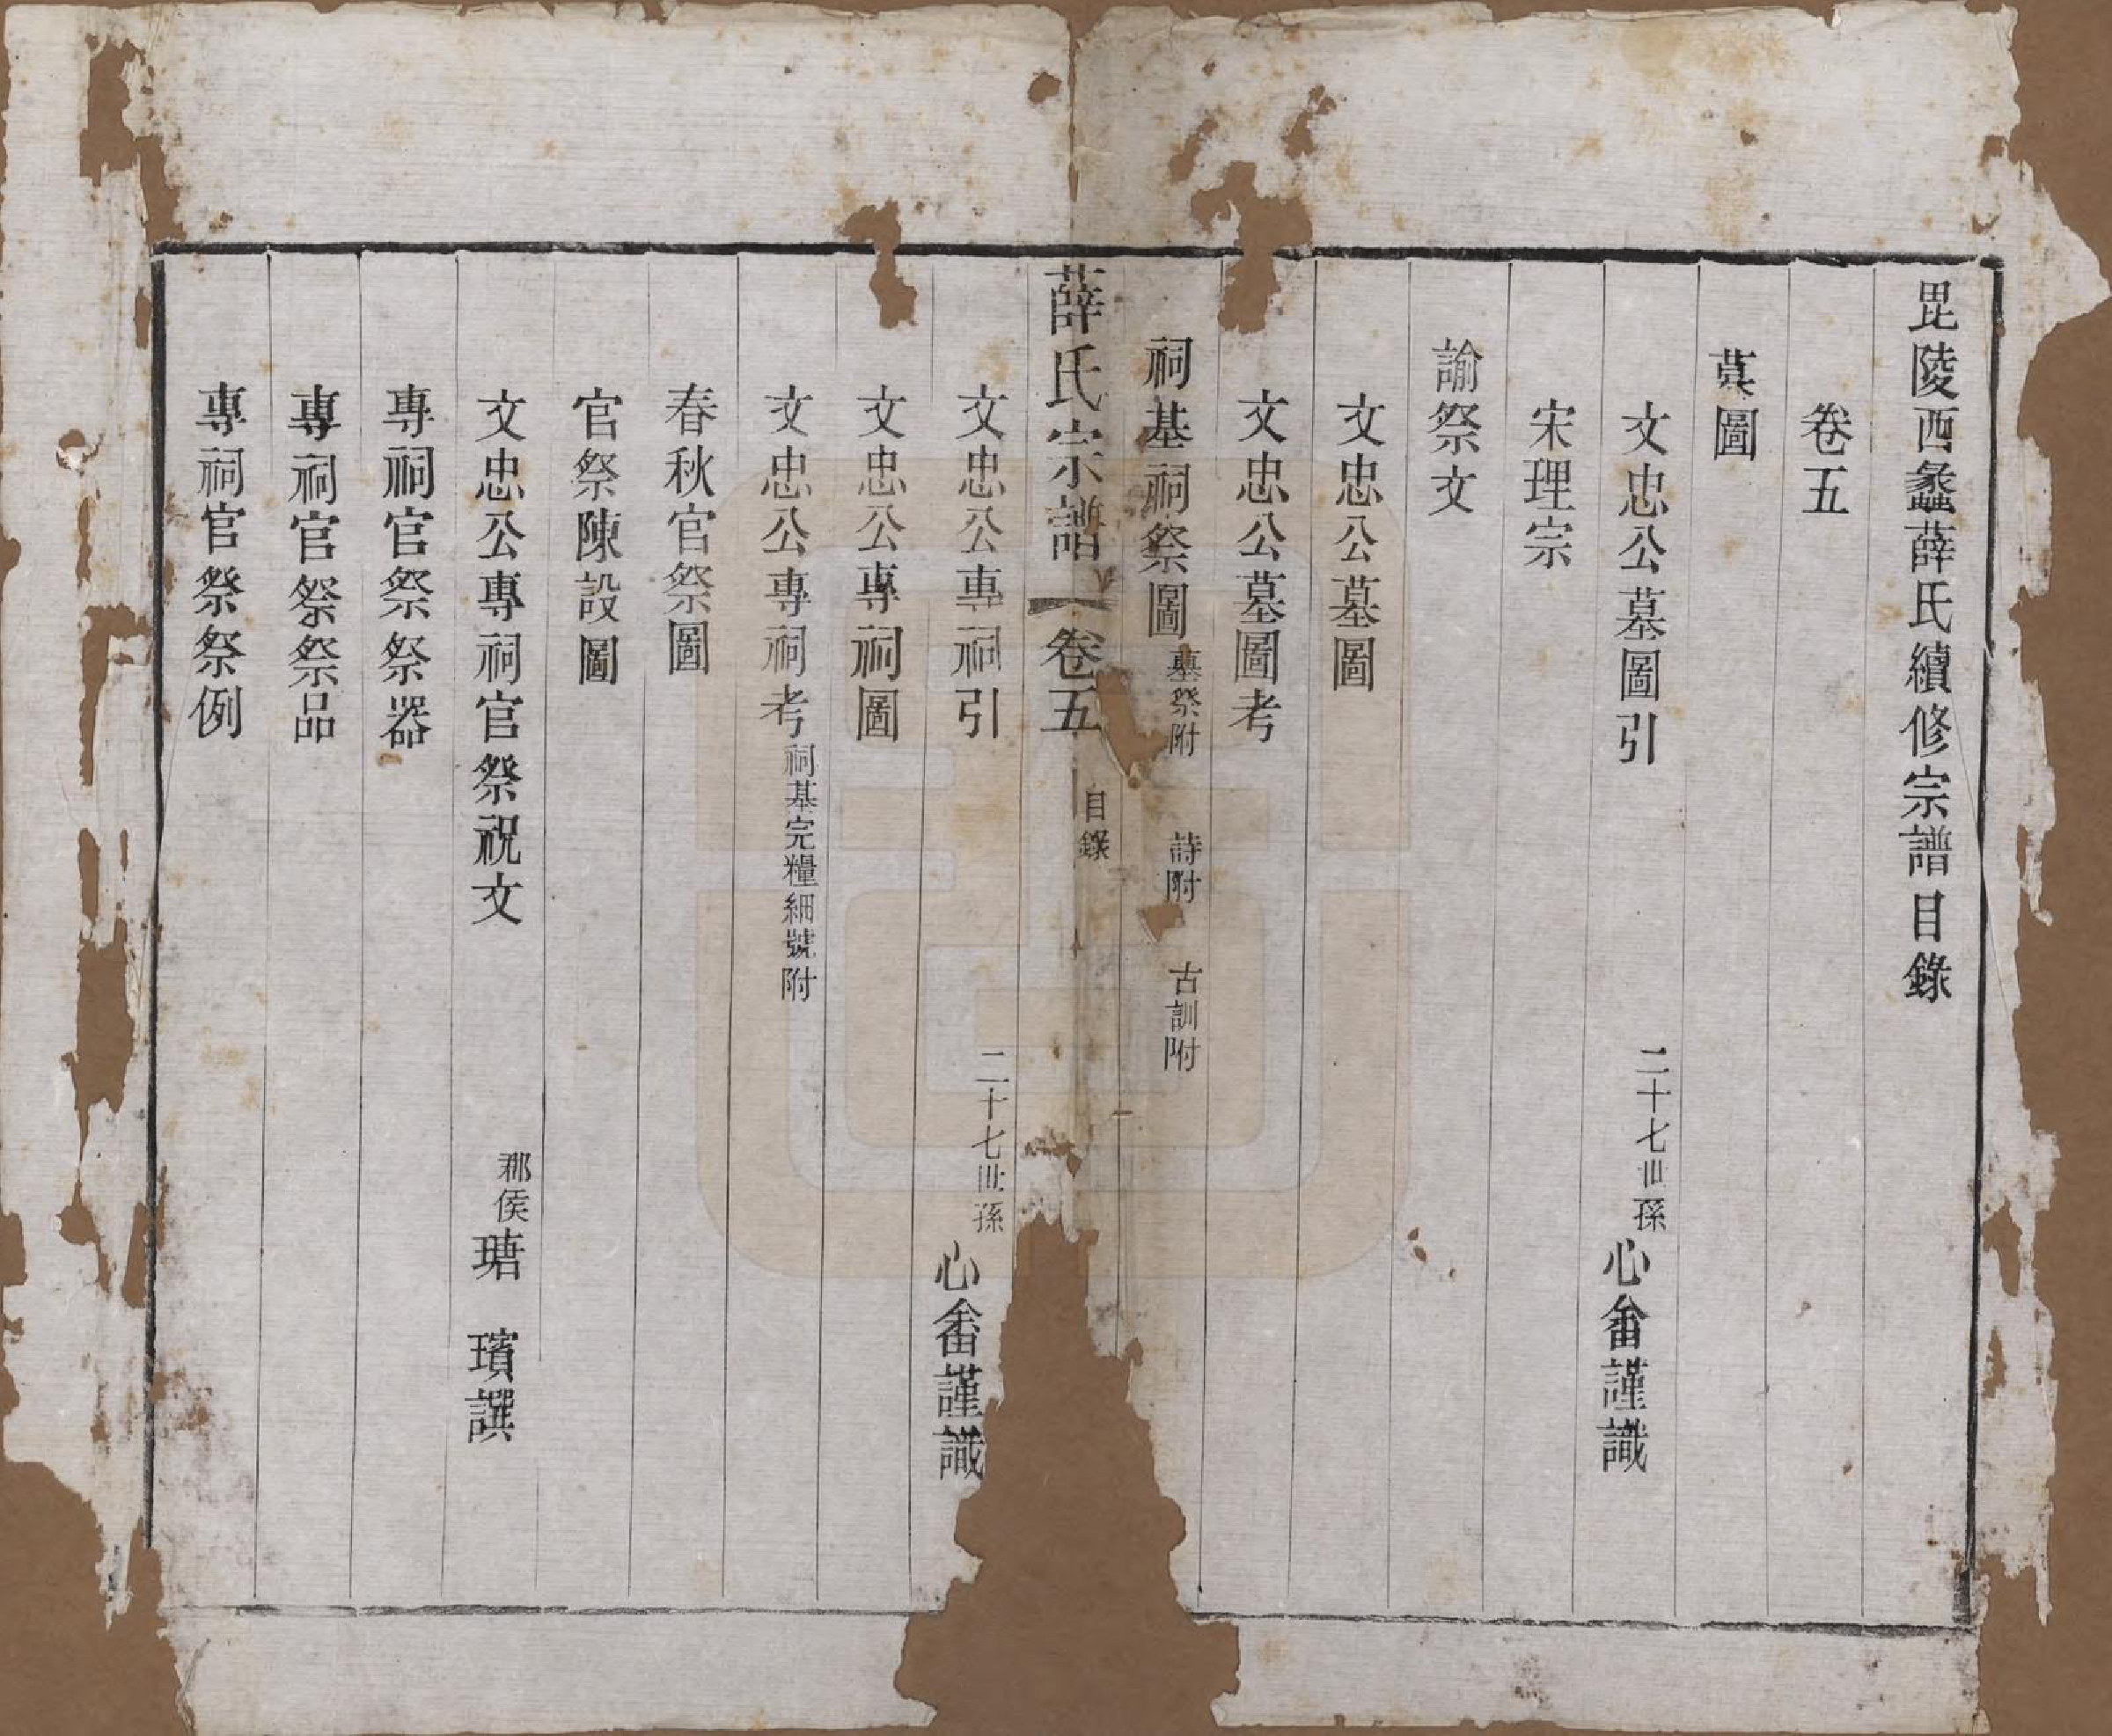 毘陵西蠡薛氏續修宗譜目錄
卷五
塋圖
文忠公墓圖引 二十七世孫心畬謹識
宋理宗
諭祭文
文忠公墓圖
文忠公墓圖考
祠基祠祭圖 墓祭附 詩附 古訓附
薛氏宗譜 卷五 目錄 一
文忠公專祠引 二十七世孫心畬謹識
文忠公專祠圖
文忠公專祠考 祠基完糧細號附
春秋官祭圖
官祭陳設圖
文忠公專祠官祭祝文 郡侯瑭 璸譔
專祠官祭祭器
專祠官祭祭品
專祠官祭祭例